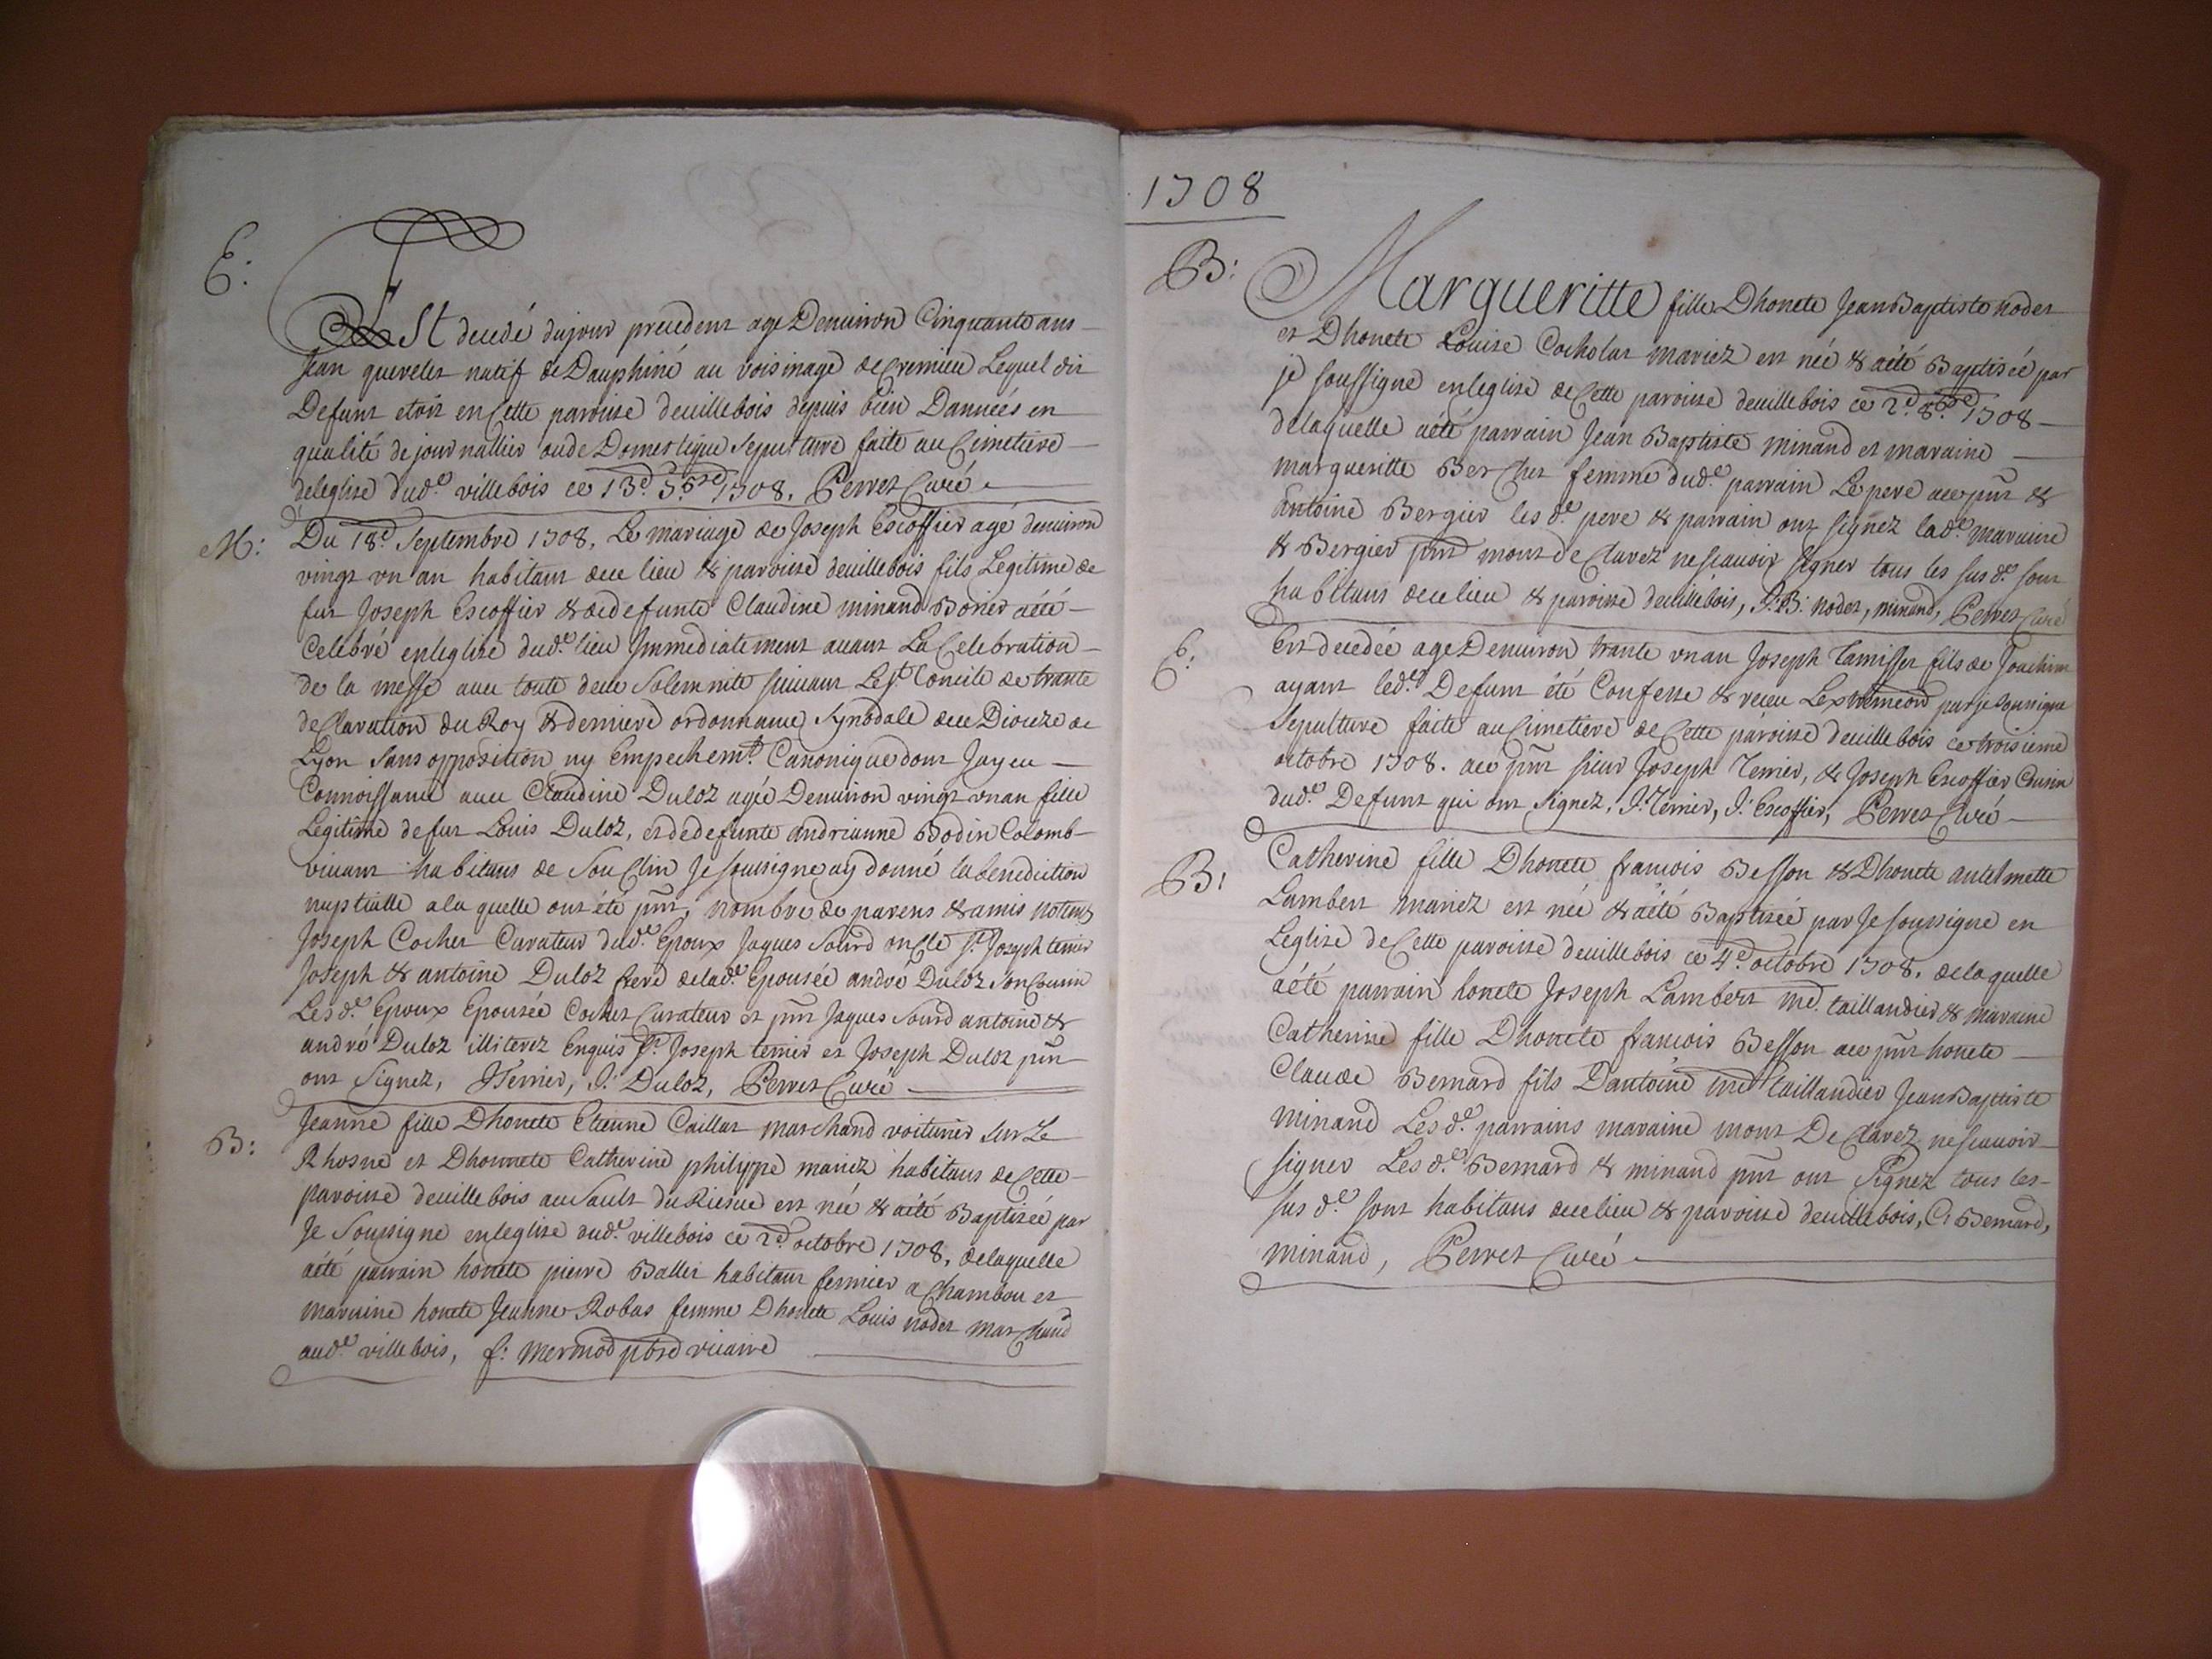 E:
Est decedé dujour precedent agé Denuiron Cinquante ans
Jean quevelet natif de Dauphiné au voisinage de Cremieu Lequel dit
Defunt etoit en Cette paroisse deuillebois depuis bien Danneés en
qualité de journallier oude Domestique Sepulture faite au Cimetiere
deleglise dud.e villebois ce 13.e 7.bre 1708, Perret Curé
M:
Du 18.e Septembre 1708, Le mariage de Joseph Escoffier agé denuiron
vingt vn an habitant dece lieu & paroisse deuillebois fils Legitime de
fut Joseph Escoffier & de defunte Claudine minand Borier aété
Celebré enleglise dud.e lieu Immediatement auant La Celebration
de la messe auec toute deue Solemnité suiuant Le st. Concile de trante
declaration du Roy & derniere ordonnance Synodale dece Dioceze de
Lyon Sans opposition ny Empechemt. Canonique dont Jay eu
Connoissance auec Claudine Duloz agée Denuiron vingt vn an fille
Legitime de fut Louis Duloz, et de defunte andrianne Bodin Colomb
viuant habitans de Souclin Je soussigne ay donné la benediction
nuptialle a la quelle ont été pnt, nombre de parens & amis notemt
Joseph Cochet Curateur dud.e Epoux Jaques Sourd oncle Sr. Joseph terrier
Joseph & antoine Duloz frere delad.e Epousée andré Duloz Son Cousin
Les d.e Epoux Epousée Cochet Curateur et pnt Jaques Sourd antoine &
andré Duloz illiterez Enquis Sr. Joseph terrier et Joseph Duloz pnt
ont Signez, JTerrier, J: Duloz, Perret Curé
B:
Jeanne fille Dhonete Etienne Caillat marchand voiturier sur Le
Rhosne et Dhonnete Catherine philippe mariez habitans de Cette
paroisse deuillebois au Sault du Rhosne est née & aété Baptizée par
Je Soussigne enleglise dud.e villebois ce 2.d octobre 1708, delaquelle
aété parrain honete pierre Ballet habitant fermier a Chambou et
maraine honete Jeanne Robas femme Dhonete Louis nodet marchand
aud.e villebois, f: mermod pbre vicaire
1708
B:
Margueritte fille Dhonete Jean Baptiste nodet
et Dhonete Louise Cocholat mariez est née & aété Baptisée par
je soussigne enleglise de Cette paroisse deuillebois ce 2.d 8.bre 1708
delaquelle aété parrain Jean Baptiste minand et maraine
margueritte Berchet femme dud.e parrain Le pere ace pnt &
antoine Bergier les d.e pere & parrain ont signez lad.e maraine
& Bergier pnt mont declarez nescauoir signer tous les sus d.e sont
habitans dece lieu & paroisse deuillebois, J:B: nodet, minand, Perret Curé
E:
Est decedée age Denuiron trante vn an Joseph Tamisser fils de Joachim
ayant led.e Defunt été Confesse & receu Lextremeon par je soussigne
Sepulture faite au Cimetiere de Cette paroisse deuillebois ce troisieme
octobre 1708. ace pnt sieur Joseph Terrier, & Joseph Escoffier Cousin
dud.e Defunt qui ont signez, J: Terrier, J: Escoffier, Perret Curé
B:
Catherine fille Dhonete francois Besson & Dhonete antelmette
Lambert mariez est née & aété Baptizée par Je soussigne en
Leglize de Cette paroisse deuillebois ce 4.e octobre 1708. delaquelle
aété parrain honete Joseph Lambert md. taillandier & maraine
Catherine fille Dhonete francois Besson ace pnt honete
Claude Bernard fils Dantoine md taillandier Jean Baptiste
minand Les d.e parrains maraine mont Declarez nescauoir
signer Les d.e Bernard & minand pnt ont Signez tous les
sus d.e sont habitans dece lieu & paroisse deuillebois, C: Bernard,
minand, Perret Curé